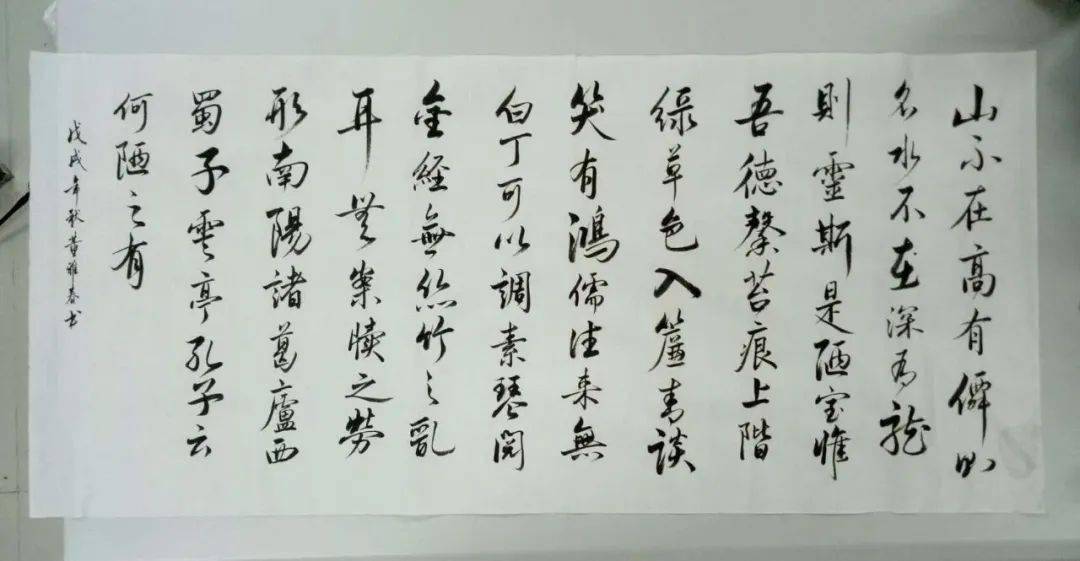 山不在高有僊则
名水不在深有龍
則靈斯是陋室惟
吾德馨苔痕上階
綠草色入簾青談
笑有鴻儒往来無
白丁可以調素琴閱
金經無絲竹之亂
耳無案牘之勞
形南陽諸葛廬西
蜀子雲亭孔子云
何陋之有
戊戌年秋黄雅春书